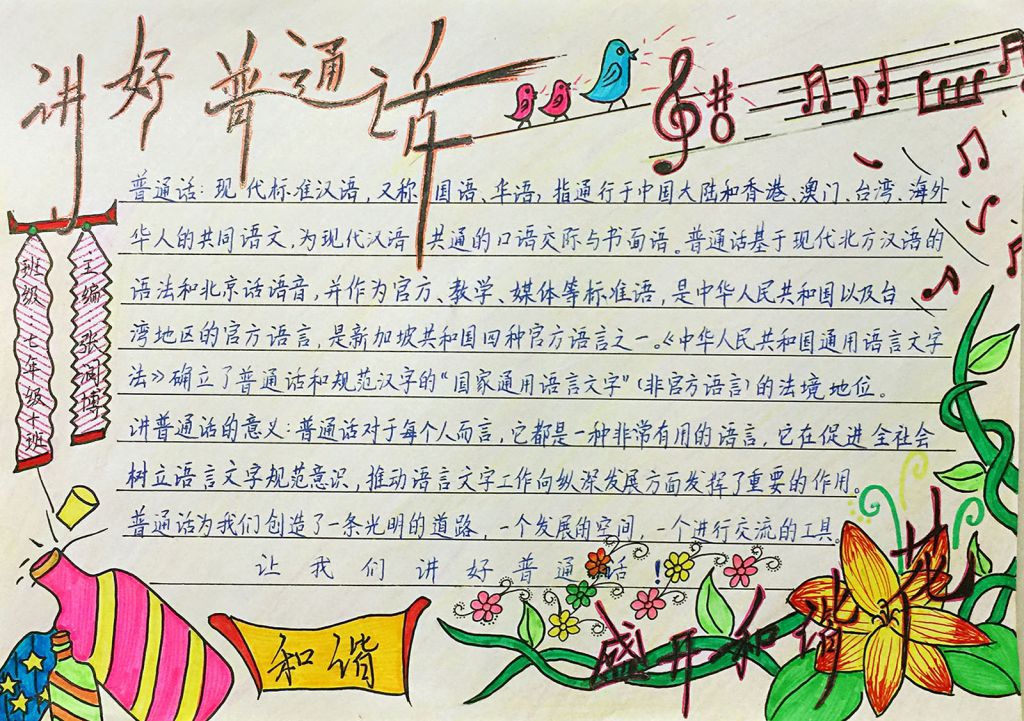 讲好普通话
普通话：现代标准汉语，又称国语、华语，指通行于中国大陆和香港、澳门、台湾、海外
华人的共同语文，为现代汉语共通的口语交际与书面语。普通话基于现代北方汉语的
语法和北京话语音，并作为官方、教学、媒体等标准语，是中华人民共和国以及台
湾地区的官方语言，是新加坡共和国四种官方语言之一。《中华人民共和国通用语言文字
法》确立了普通话和规范汉字的“国家通用语言文字”（非官方语言）的法境地位。
讲普通话的意义：普通话对于每个人而言，它都是一种非常有用的语言，它在促进全社会
树立语言文字规范意识，推动语言文字工作向纵深发展方面发挥了重要的作用。
普通话为我们创造了一条光明的道路，一个发展的空间，一个进行交流的工具。
让我们讲好普通话！
主编 张润博
班级 七年级十班
和谐
盛开和谐花